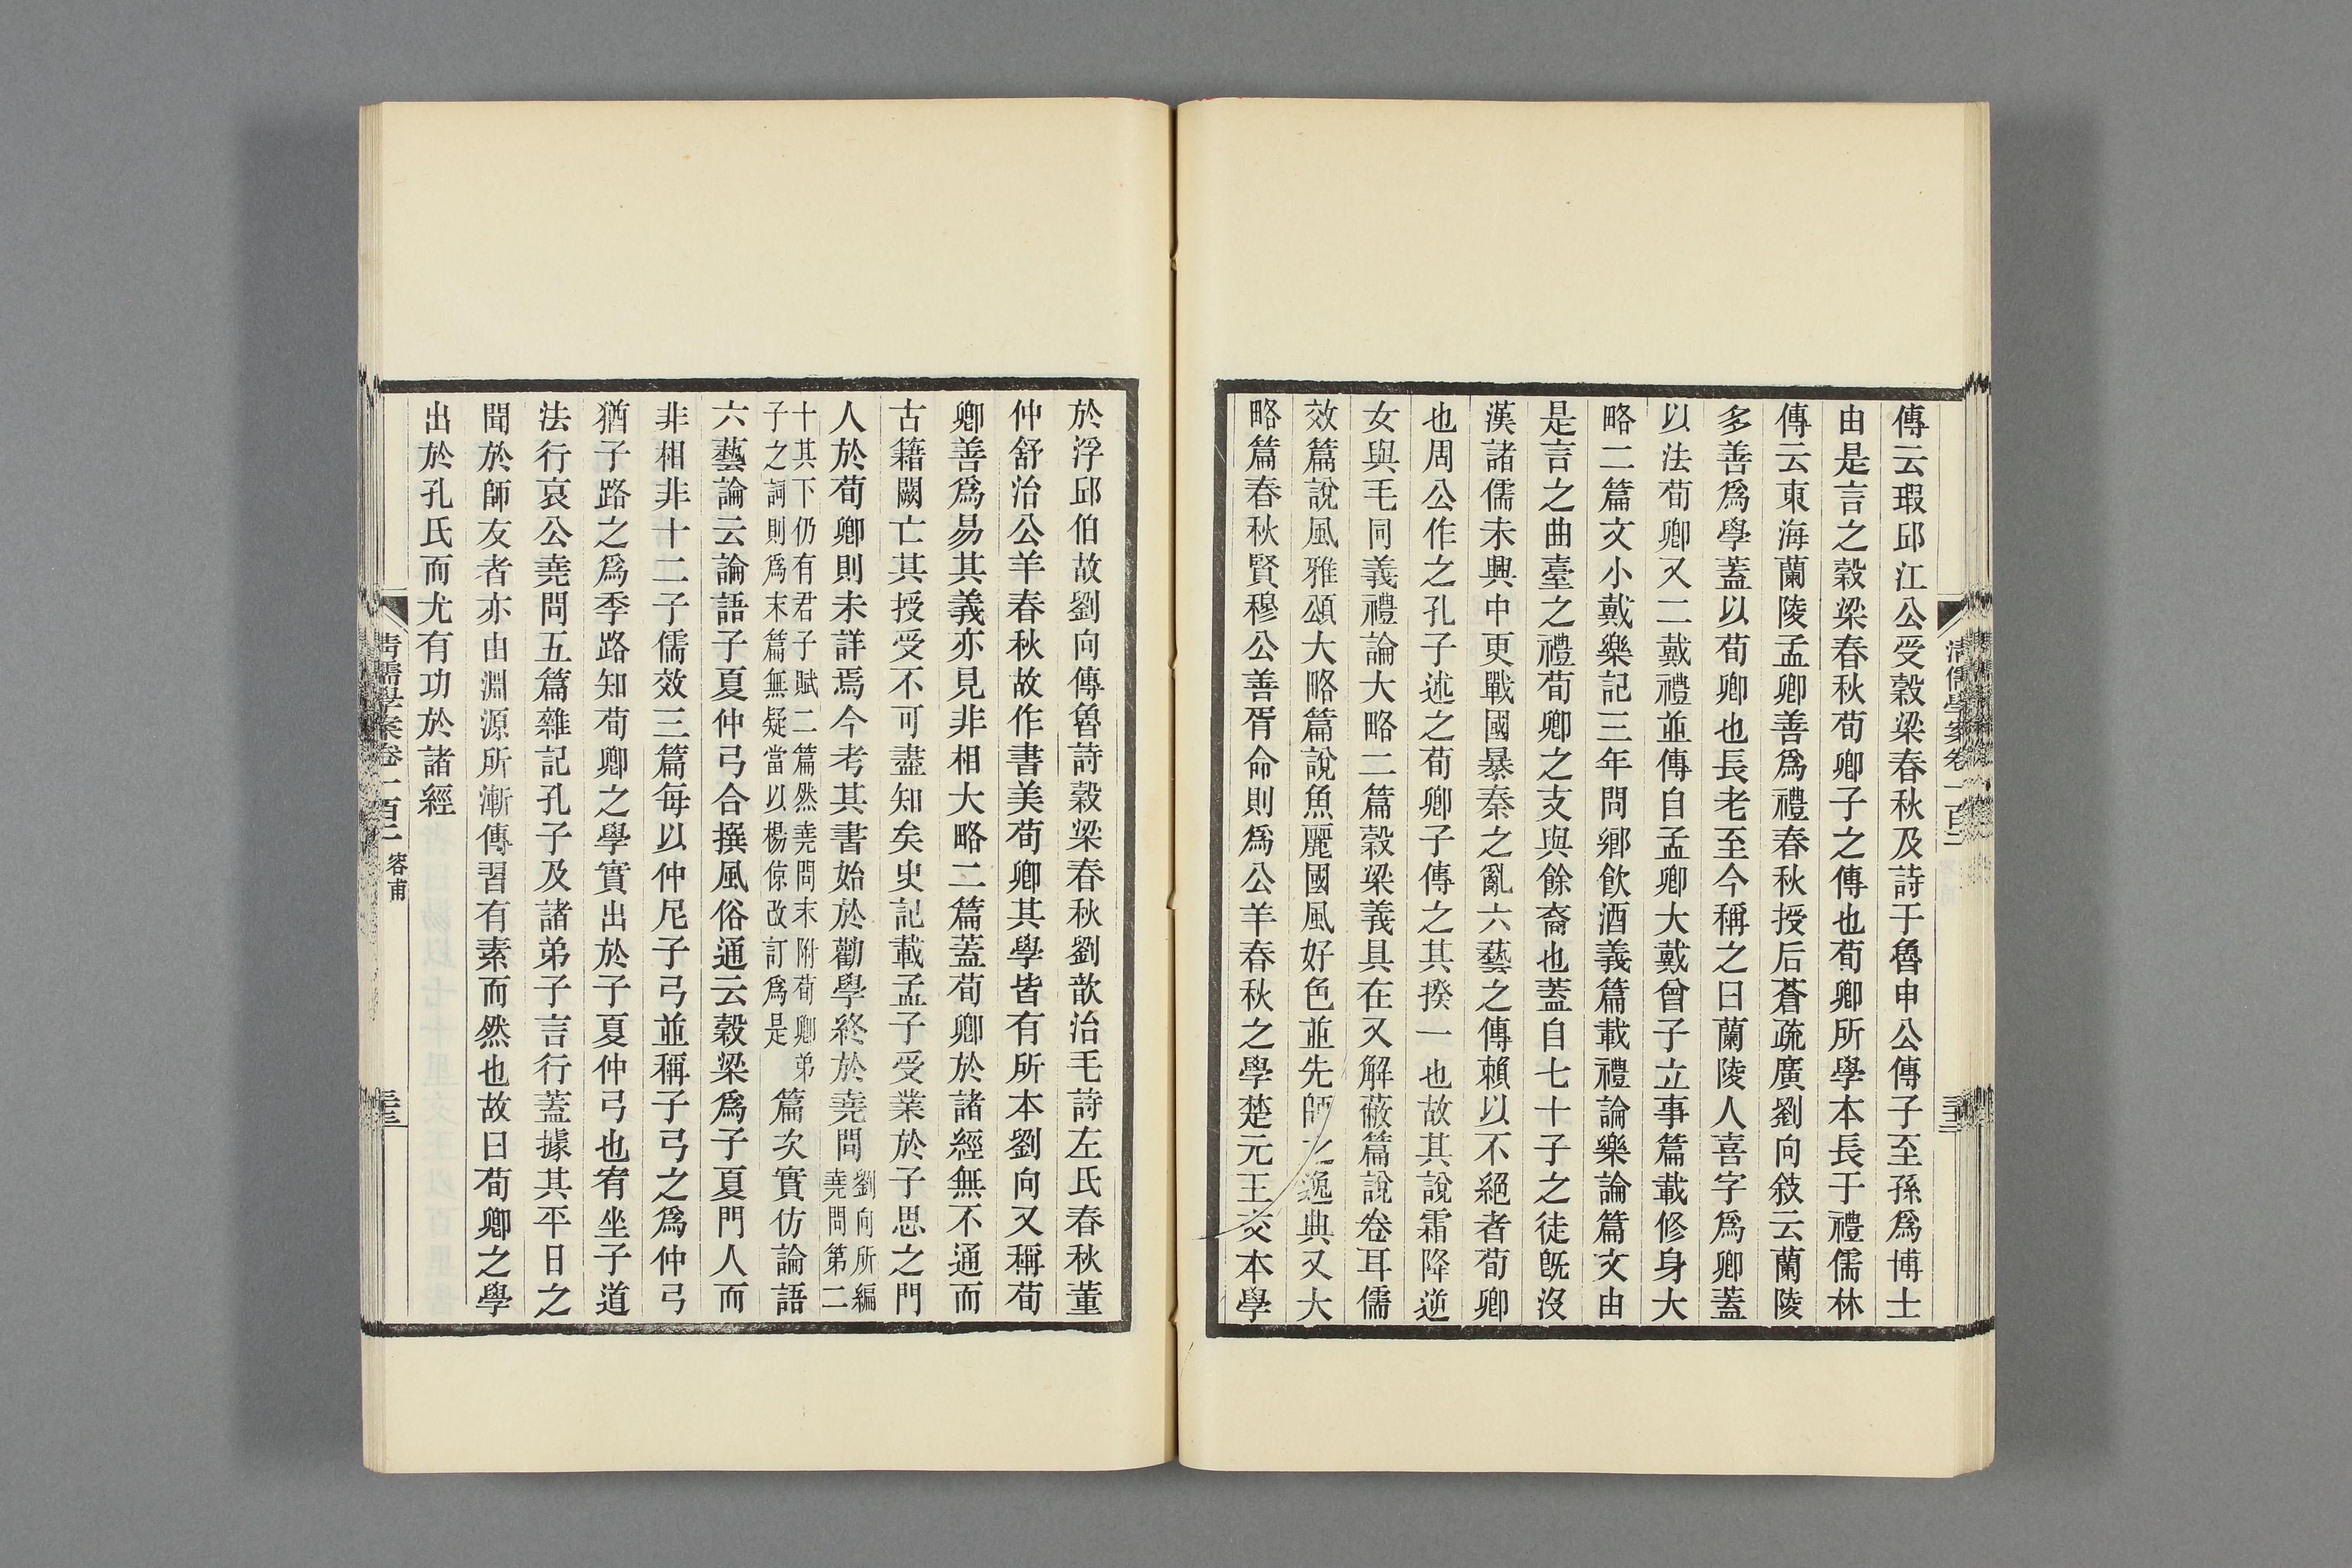 傳云瑕邱江公受穀梁春秋及詩于魯申公傳子至孫爲博士
由是言之穀梁春秋荀卿子之傳也荀卿所學本長于禮儒林
傳云東海蘭陵孟卿善爲禮春秋授后蒼疏廣劉向敍云蘭陵
多善爲學蓋以荀卿也長老至今稱之曰蘭陵人喜字爲卿蓋
以法荀卿又二戴禮並傳自孟卿大戴曾子立事篇載修身大
略二篇文小戴樂記三年問鄉飮酒義篇載禮論樂論篇文由
是言之曲臺之禮荀卿之支與餘裔也蓋自七十子之徒旣沒
漢諸儒未興中更戰國暴秦之亂六藝之傳賴以不絕者荀卿
也周公作之孔子述之荀卿子傳之其揆一也故其說霜降逆
女與毛同義禮論大略二篇穀梁義具在又解蔽篇說卷耳儒
效篇說風雅頌大略篇說魚麗國風好色並先師之逸典又大
略篇春秋賢穆公善胥命則爲公羊春秋之學楚元王交本學
於浮邱伯故劉向傳魯詩穀梁春秋劉歆治毛詩左氏春秋董
仲舒治公羊春秋故作書美荀卿其學皆有所本劉向又稱荀
卿善爲易其義亦見非相大略二篇蓋荀卿於諸經無不通而
古籍闕亡其授受不可盡知矣史記載孟子受業於子思之門
人於荀卿則未詳焉今考其書始於勸學終於堯問劉向所編堯問第二
十其下仍有君子賦二篇然堯問末附荀卿弟子之詞則爲末篇無疑當以楊倞改訂爲是篇次實仿論語
六藝論云論語子夏仲弓合撰風俗通云穀梁爲子夏門人而
非相非十二子儒效三篇每以仲尼子弓並稱子弓之爲仲弓
猶子路之爲季路知荀卿之學實出於子夏仲弓也宥坐子道
法行哀公堯問五篇雜記孔子及諸弟子言行蓋據其平日之
聞於師友者亦由淵源所漸傳習有素而然也故曰荀卿之學
出於孔氏而尤有功於諸經
清儒學案卷一百二 容甫